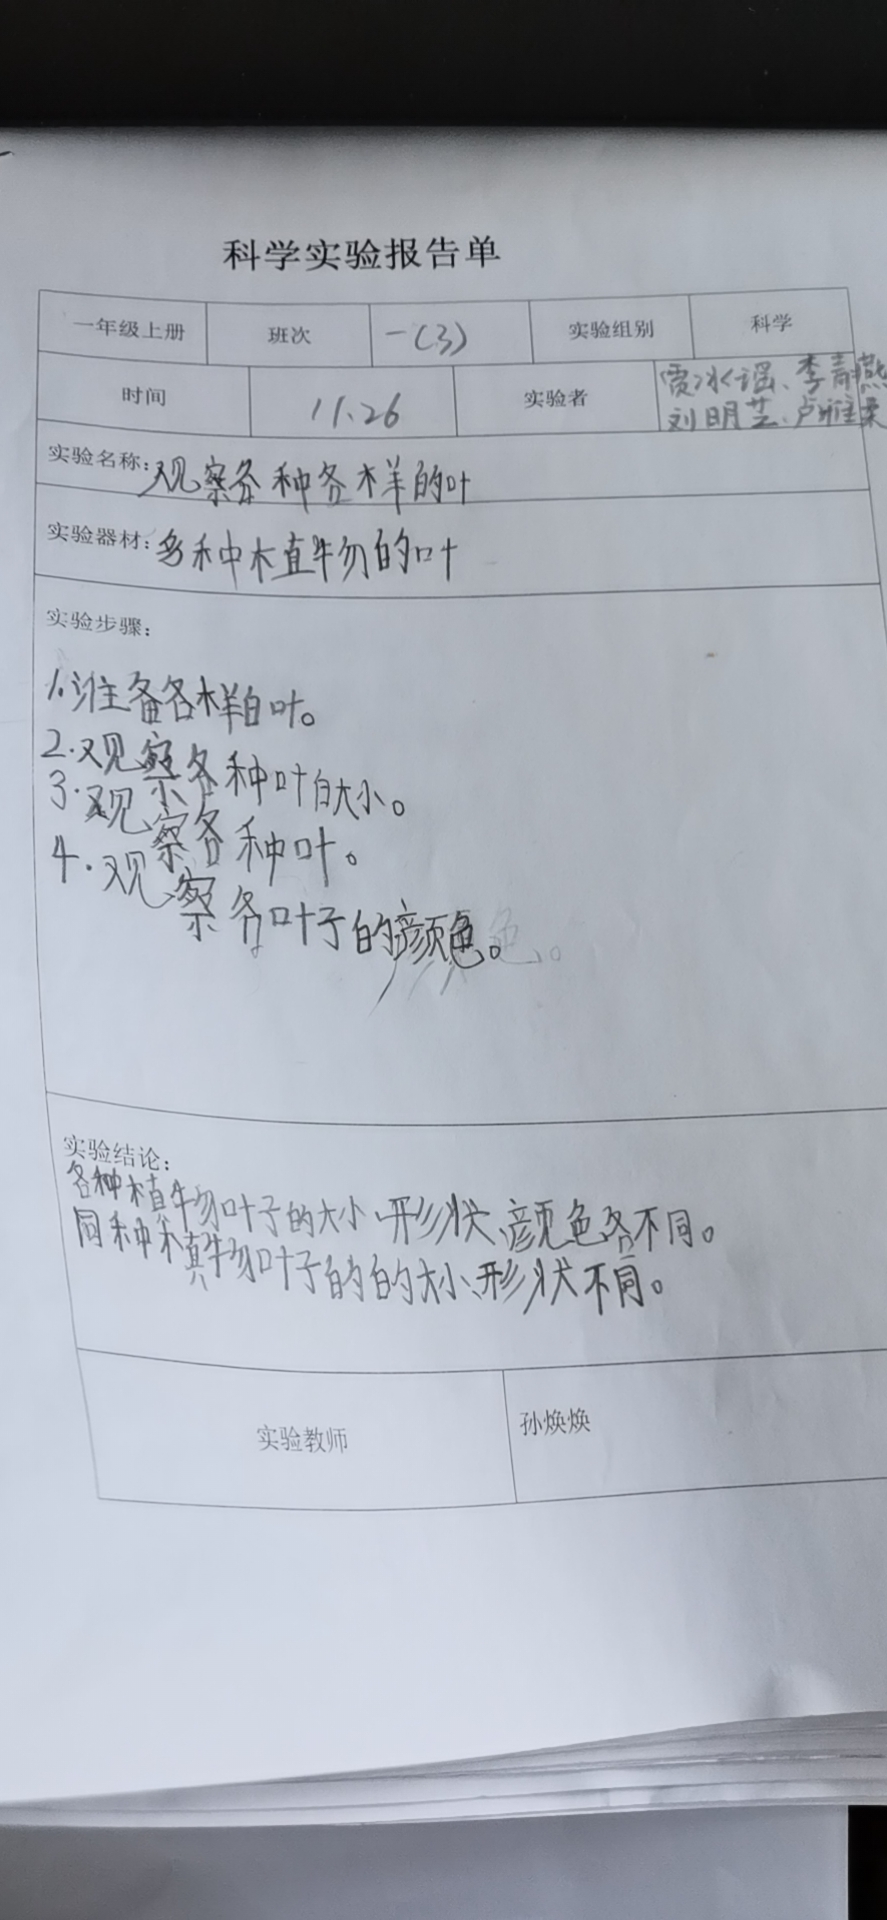 科学实验报告单
一年级上册 班次 一(3) 实验组别 科学
时间 11.26 实验者 贾冰谣、李青燕
刘明芸、卢雅柔
实验名称:观察各种各样的叶
实验器材:多种植物的叶
实验步骤:
1.准备各样的叶。
2.观察各种叶的大小。
3.观察各种叶。
4.观察各叶子的颜色。
实验结论:
各种植物叶子的大小、形状、颜色各不同。
同种植物叶子的的大小、形状不同。
实验教师 孙焕焕